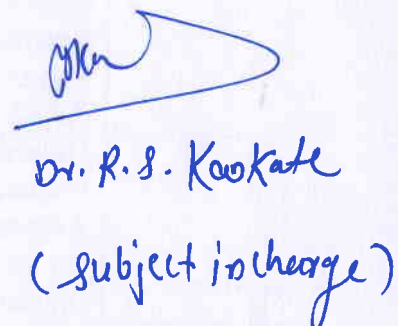 Dr. R. S. Kaokate
(Subject incharge)